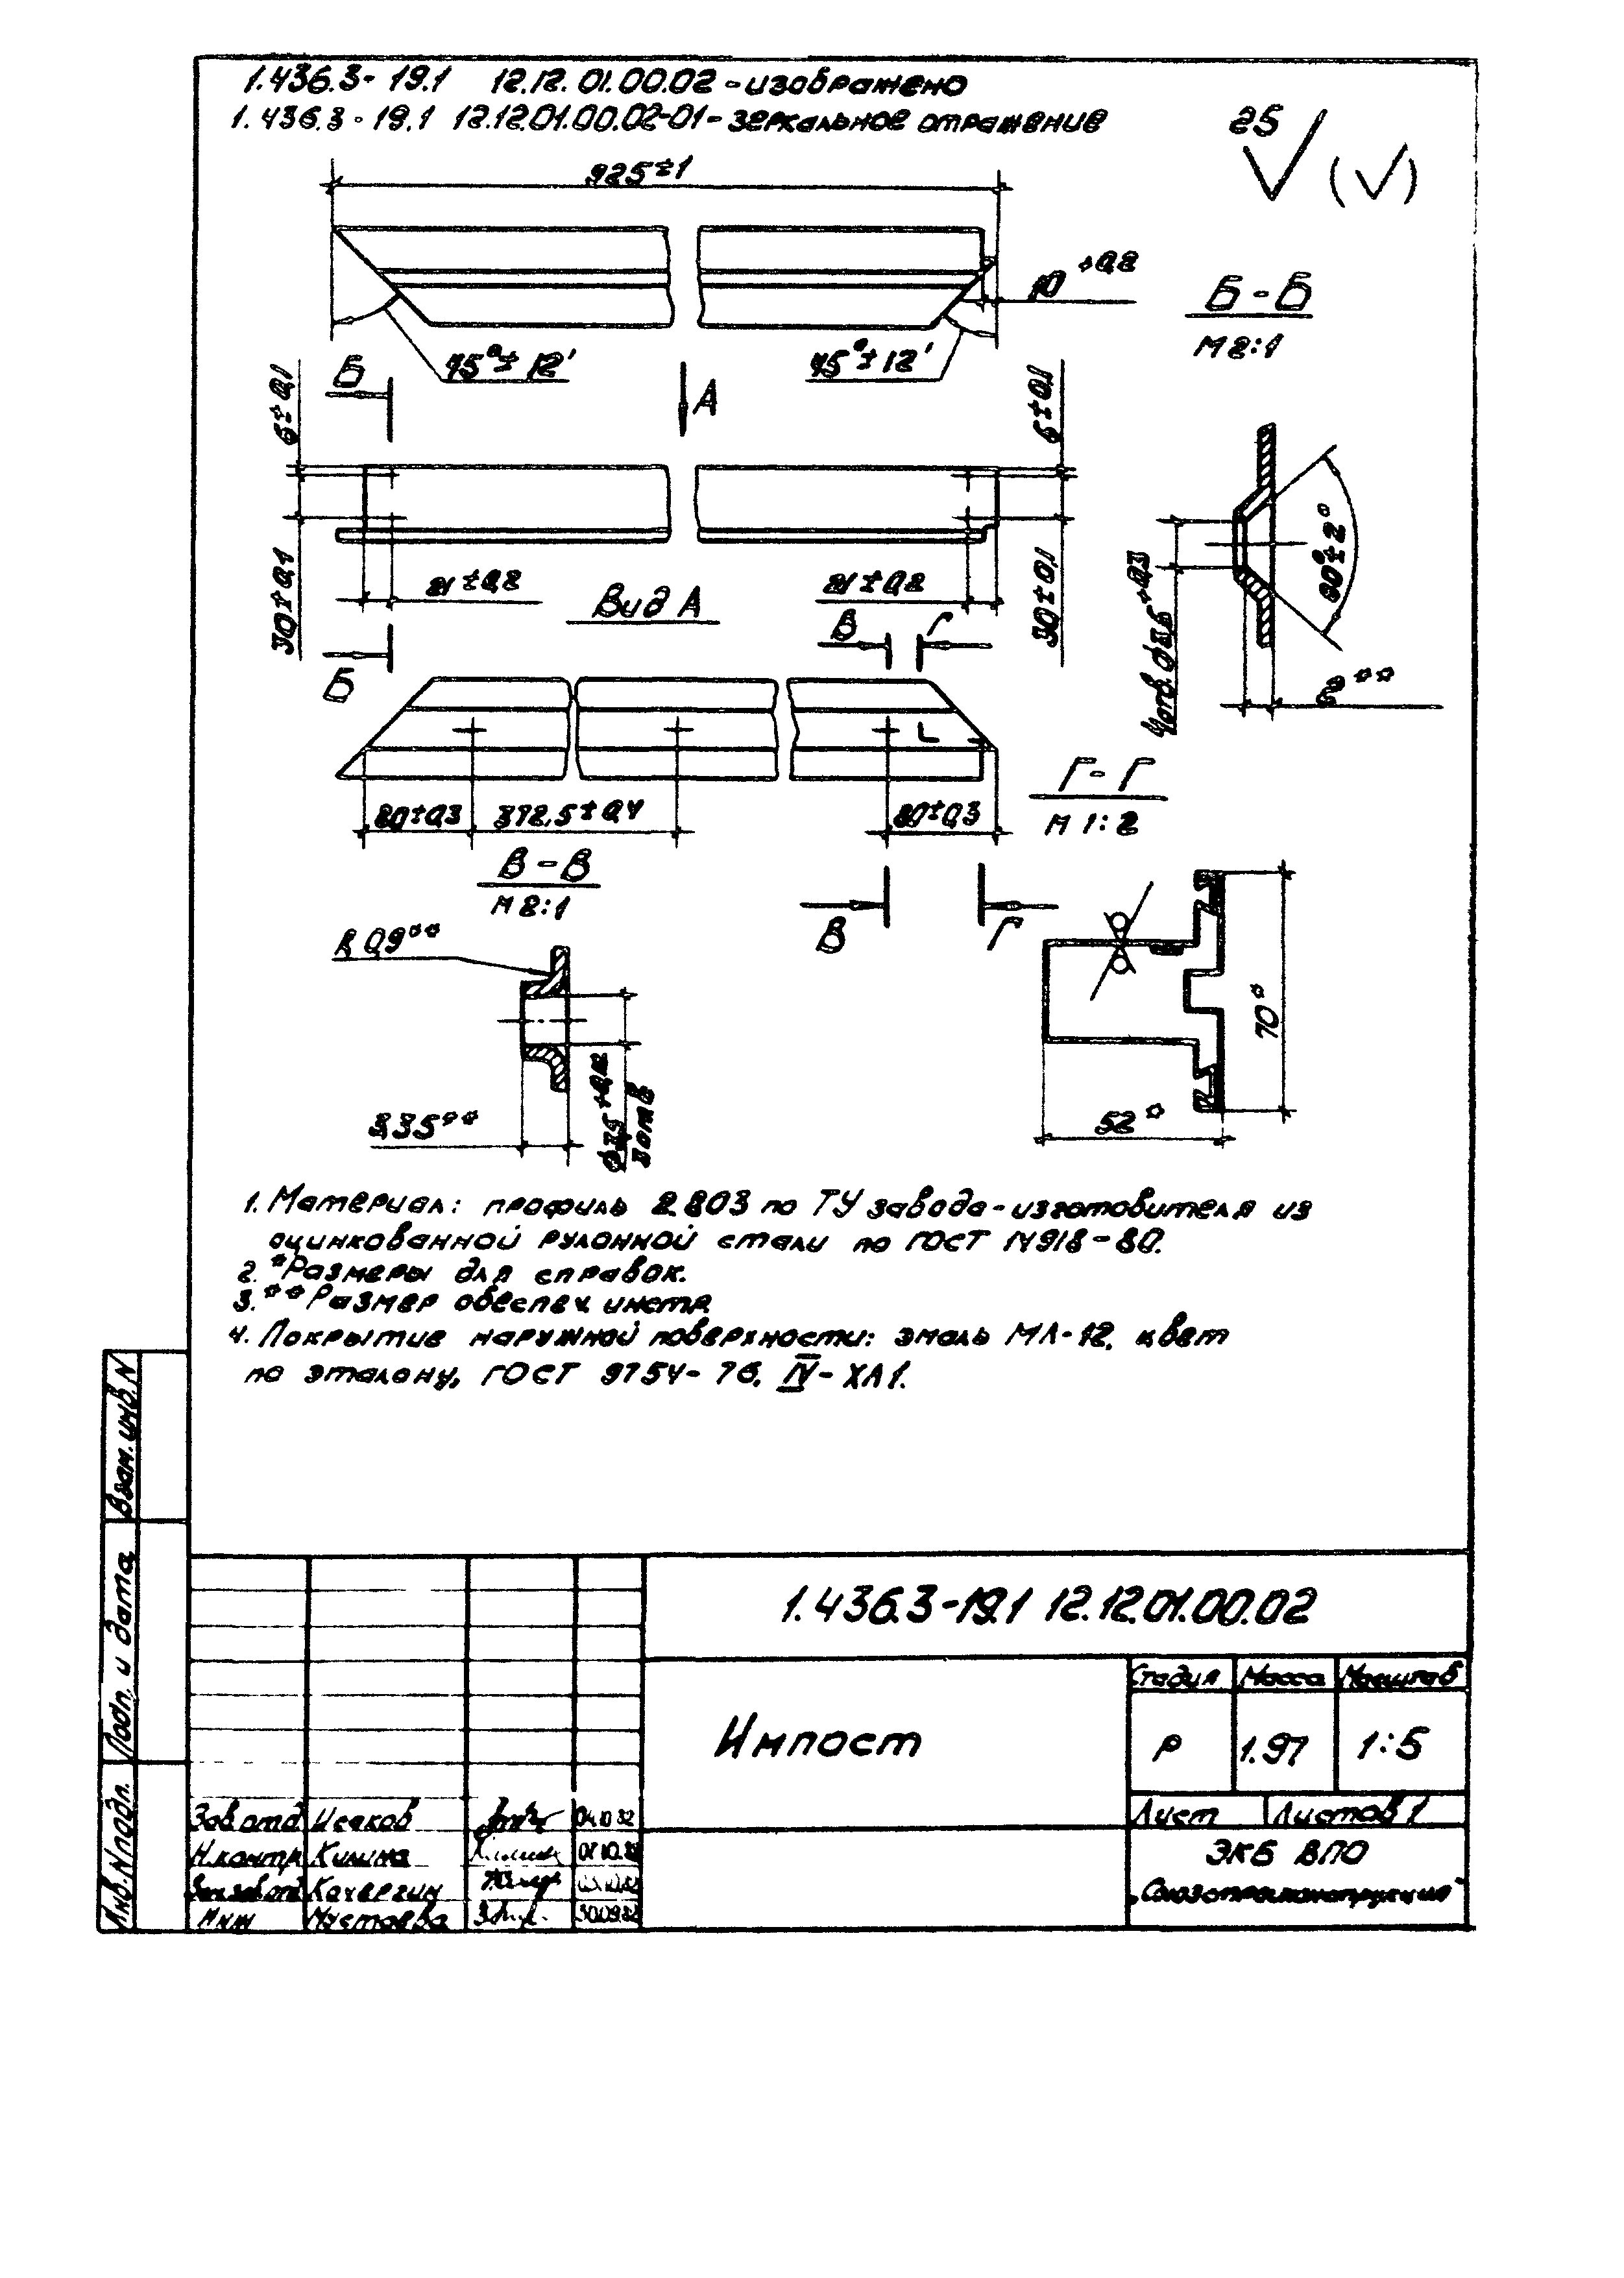 1.436.3-19.1 12.12.01.00.02-изображено
1.436.3-19.1 12.12.01.00.02-01-зеркальное отражение
25
(√)
925±1
10 +0,2
Б-Б
М 2:1
45°±12'
45°±12'
Б
А
6±0,1
6±0,1
30±0,1
30±0,1
21±0,2
21±0,2
Вид А
80°±2°
В
Г
Б
80±0,3
372,5±0,4
80±0,3
Г-Г
М 1:2
В-В
М 2:1
В
Г
R 0,9**
3,35**
2 отв
70*
52*
1. Материал: профиль 2.803 по ТУ завода-изготовителя из
оцинкованной рулонной стали по ГОСТ 14918-80.
2. *Размеры для справок.
3. **Размер обеспеч. инстр.
4. Покрытие наружной поверхности: эмаль МЛ-12, цвет
по эталону, ГОСТ 9754-76, IV-ХЛ1.
Взам. инв. N
Подп. и дата
Инв. N подл.
1.436.3-19.1 12.12.01.00.02
Импост
Стадия Масса Масштаб
Р 1.97 1:5
Лист Листов 1
ЭКБ ВПО
Зав отд Исаков 04.10.82
Н.контр Килима
Кочергин
Инж Мустаева 30.09.82